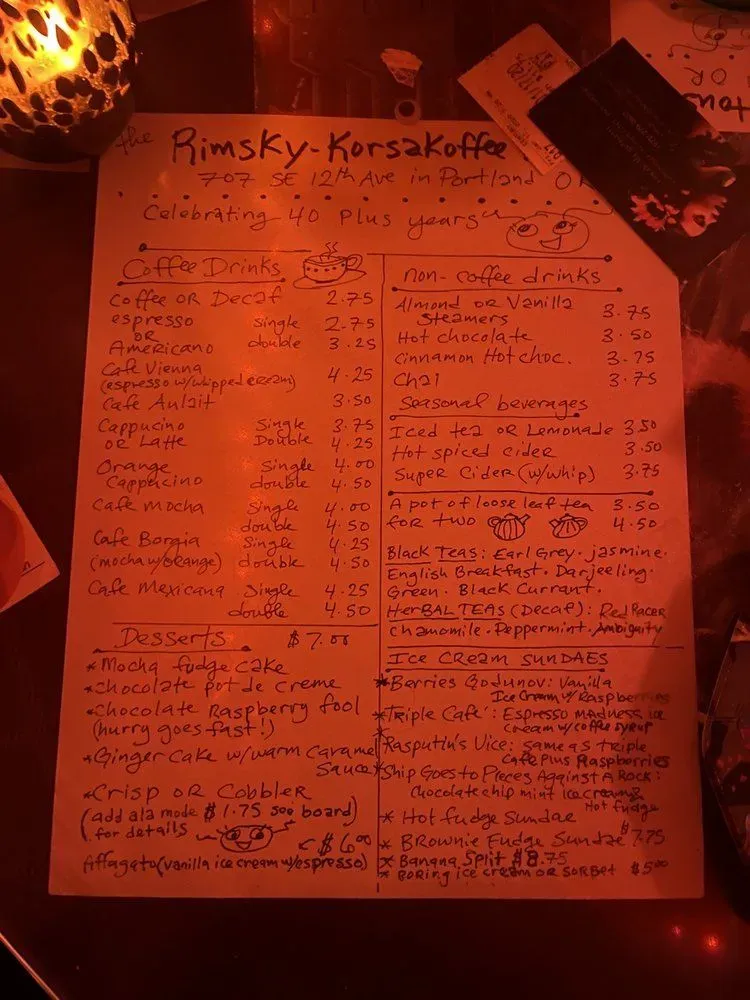 the Rimsky-Korsakoffee
707 SE 12th Ave in Portland O
Celebrating 40 Plus years
Coffee Drinks
Coffee OR Decaf 2.75
espresso Single 2.75
OR
Americano double 3.25
Cafe Vienna
(espresso w/whipped cream) 4.25
Cafe Aulait 3.50
Cappucino Single 3.75
OR Latte Double 4.25
Orange Single 4.00
Cappucino double 4.50
Cafe Mocha Single 4.00
double 4.50
Cafe Borgia Single 4.25
(mocha w/orange) double 4.50
Cafe Mexicana Single 4.25
double 4.50
Desserts $7.00
*Mocha fudge cake
*Chocolate pot de creme
*Chocolate Raspberry fool
(hurry goes fast!)
*Ginger Cake w/warm Caramel
Sauce
*Crisp OR Cobbler
(add ala mode $1.75 see board)
for details
$6.00
Affagato (vanilla ice cream w/espresso)
non-coffee drinks
Almond OR Vanilla
Steamers 3.75
Hot chocolate 3.50
Cinnamon Hot choc. 3.75
Chai 3.75
Seasonal beverages
Iced tea OR Lemonade 3.50
Hot spiced cider 3.50
Super Cider (w/whip) 3.75
A pot of loose leaf tea 3.50
for two 4.50
Black Teas: Earl Grey. jasmine.
English Breakfast. Darjeeling.
Green. Black Currant.
HerBAL TEAS (Decaf): Red Racer
Chamomile. Peppermint. Ambiguity
Ice Cream Sundaes
*Berries Godunov: Vanilla
Ice Cream w/ Raspberries
*Triple Cafe': Espresso madness ice
cream w/coffee syrup
*Rasputin's Vice: same as triple
Cafe Plus Raspberries
*Ship Goes to Pieces Against A Rock:
Chocolate chip mint ice cream &
Hot fudge
* Hot fudge Sundae
* Brownie Fudge Sundae $7.75
* Banana Split $8.75
* Boring ice cream OR Sorbet $5.00